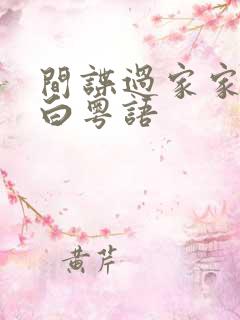 間諜過家家
白粵語
黄芹